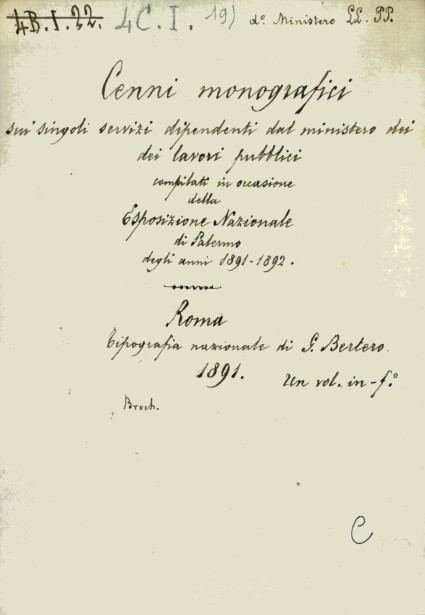 4B.I.22. 4C.I. 19) d.° Ministero LL. PP.
Cenni monografici
sui singoli servizi dipendenti dal ministero dei
dei lavori pubblici
compilati in occasione
della
Esposizione Nazionale
di Palermo
degli anni 1891-1892.
Roma
Tipografia nazionale di G. Bertero.
1891. Un vol. in-f.°
Broch.
C